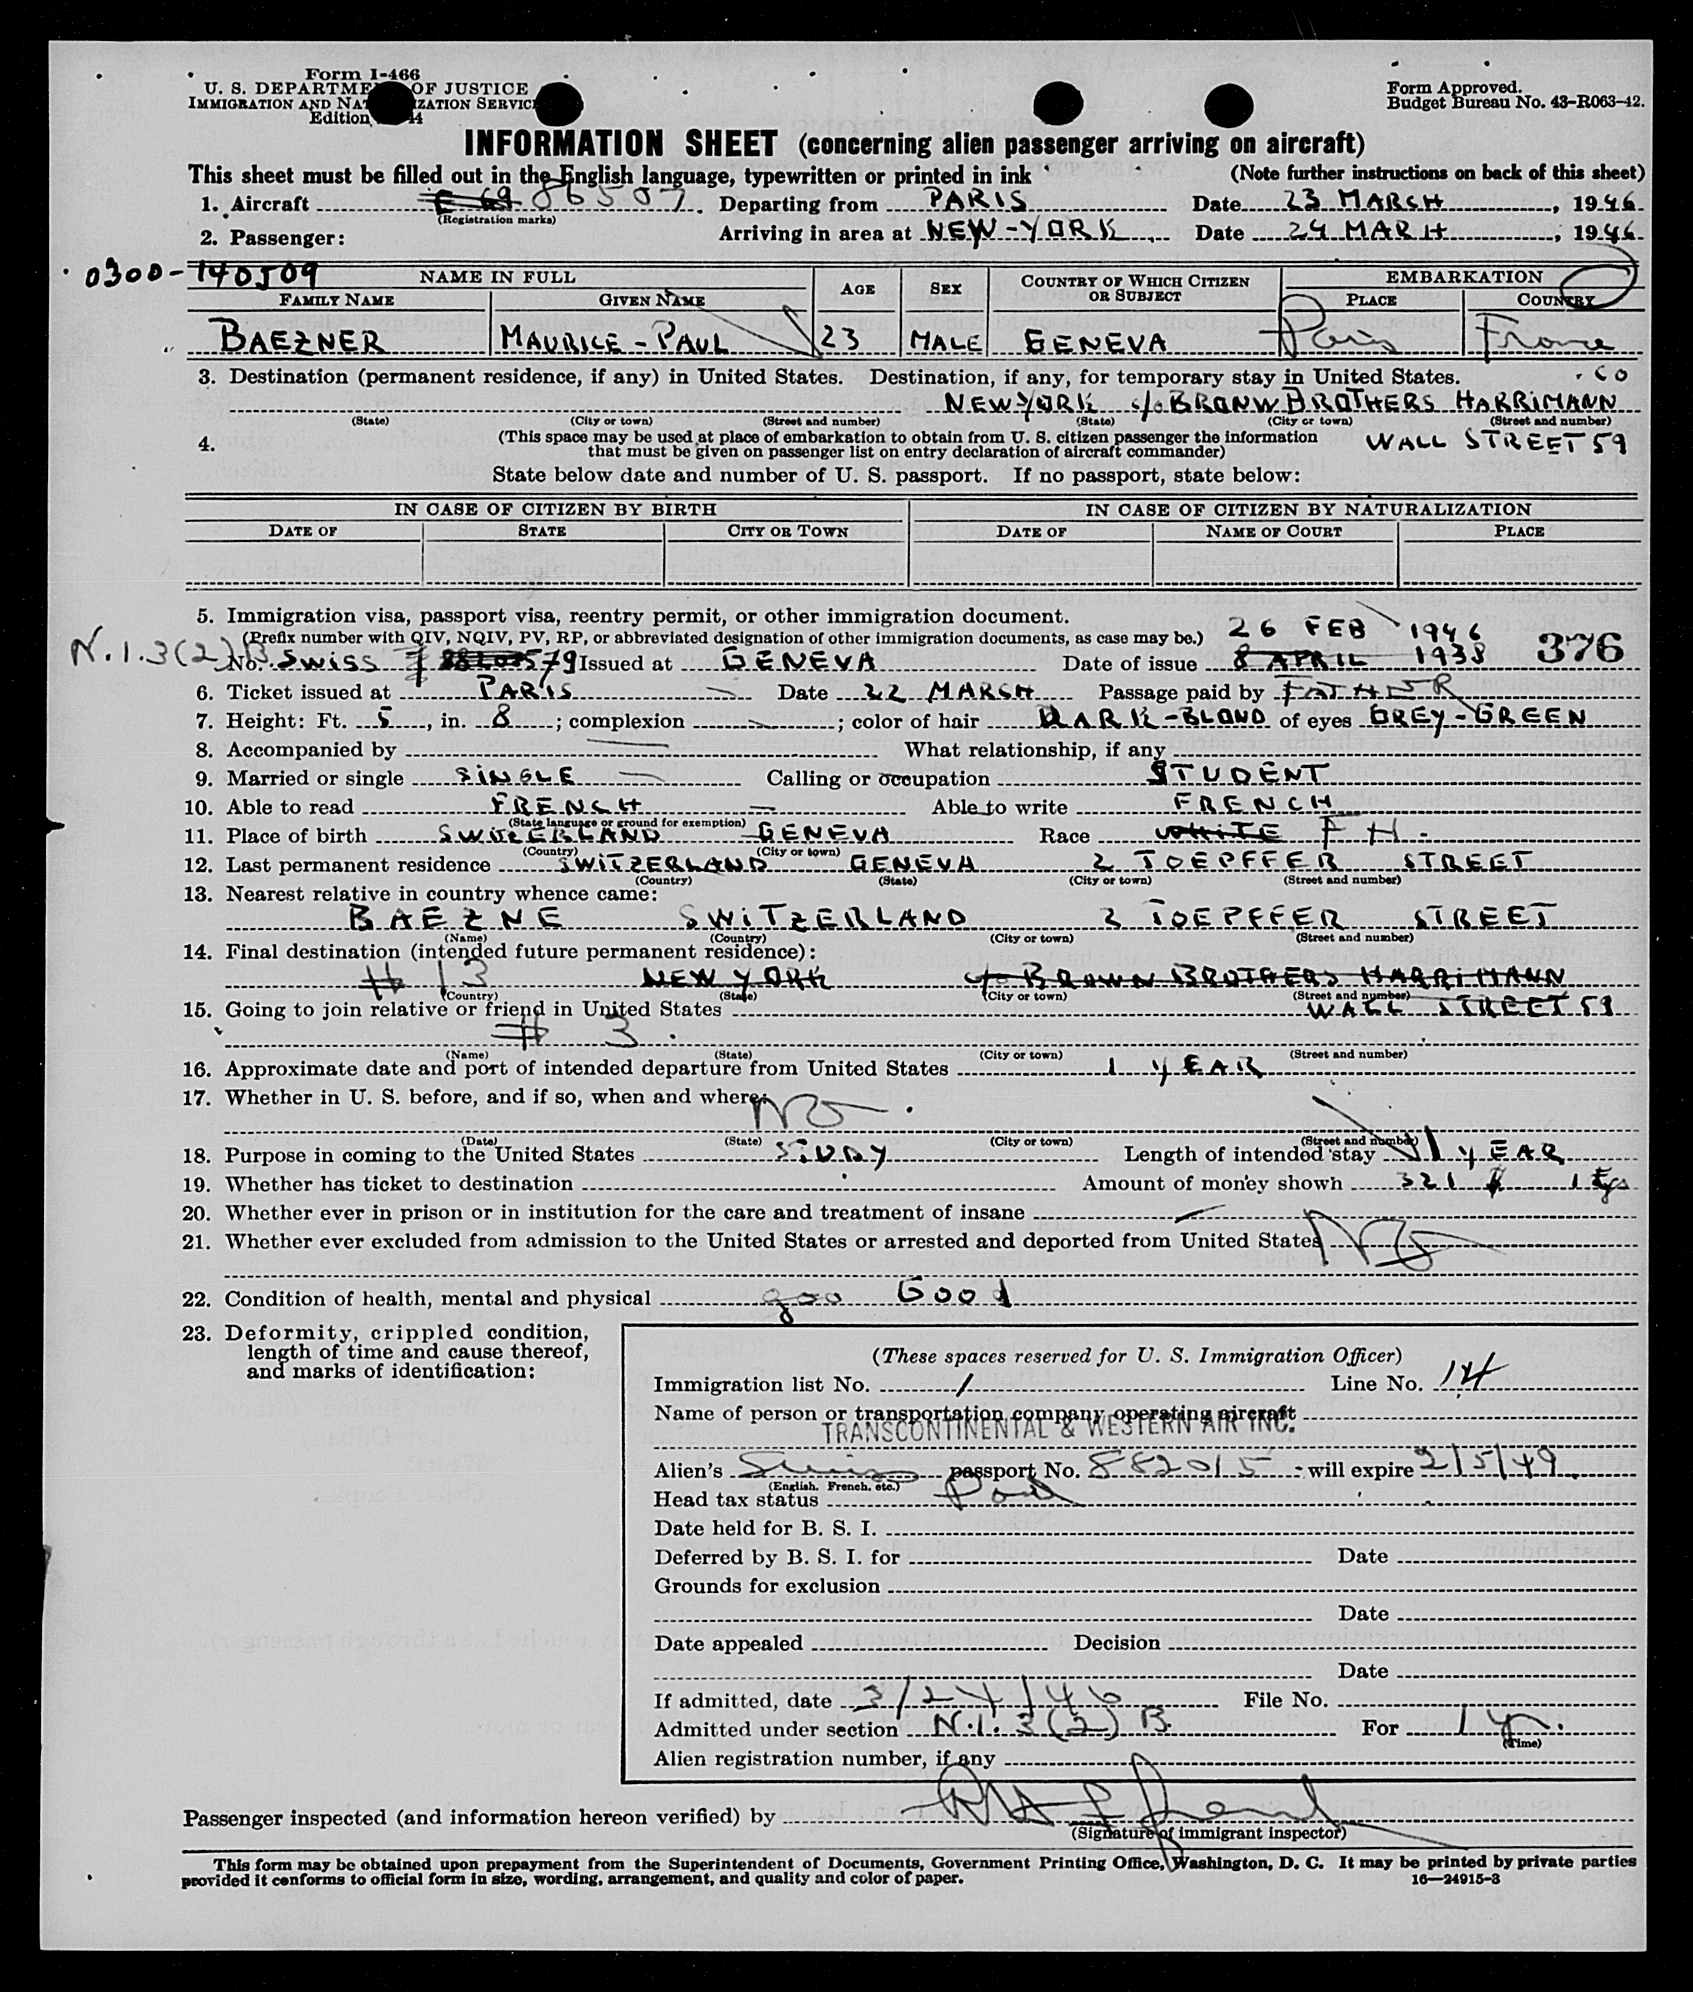 Form I-466
U. S. DEPARTME OF JUSTICE
IMMIGRATION AND NA ZATION SERVIC
Edition 4
Form Approved.
Budget Bureau No. 43-R063-42.
INFORMATION SHEET (concerning alien passenger arriving on aircraft)
This sheet must be filled out in the English language, typewritten or printed in ink (Note further instructions on back of this sheet)
1. Aircraft 86507 Departing from PARIS Date 23 MARCH, 1946
(Registration marks)
2. Passenger: Arriving in area at NEW-YORK Date 24 MARH, 1946
0300-140509
NAME IN FULL AGE SEX COUNTRY OF WHICH CITIZEN OR SUBJECT EMBARKATION
FAMILY NAME GIVEN NAME PLACE COUNTRY
BAEZNER MAURICE-PAUL 23 MALE GENEVA Paris France
3. Destination (permanent residence, if any) in United States. Destination, if any, for temporary stay in United States.
NEW YORK c/o BRONW BROTHERS HARRIMANN CO
(State) (City or town) (Street and number) (State) (City or town) (Street and number)
WALL STREET 59
4. (This space may be used at place of embarkation to obtain from U. S. citizen passenger the information
that must be given on passenger list on entry declaration of aircraft commander)
State below date and number of U. S. passport. If no passport, state below:
IN CASE OF CITIZEN BY BIRTH IN CASE OF CITIZEN BY NATURALIZATION
DATE OF STATE CITY OR TOWN DATE OF NAME OF COURT PLACE
5. Immigration visa, passport visa, reentry permit, or other immigration document.
(Prefix number with QIV, NQIV, PV, RP, or abbreviated designation of other immigration documents, as case may be.) 26 FEB 1946
N.1.3(2)B
No. SWISS 579 Issued at GENEVA Date of issue 8 APRIL 1938 376
6. Ticket issued at PARIS Date 22 MARCH Passage paid by FATHER
7. Height: Ft. 5, in. 8; complexion ; color of hair DARK-BLOND of eyes GREY-GREEN
8. Accompanied by What relationship, if any
9. Married or single SINGLE Calling or occupation STUDENT
10. Able to read FRENCH Able to write FRENCH
(State language or ground for exemption)
11. Place of birth SWITZERLAND GENEVA Race WHITE FH.
(Country) (City or town)
12. Last permanent residence SWITZERLAND GENEVA 2 TOEPFFER STREET
(Country) (State) (City or town) (Street and number)
13. Nearest relative in country whence came:
BAEZNE SWITZERLAND 2 TOEPFFER STREET
(Name) (Country) (City or town) (Street and number)
14. Final destination (intended future permanent residence):
# 13 NEW YORK c/o BROWN BROTHERS HARRIMANN
(Country) (State) (City or town) (Street and number)
15. Going to join relative or friend in United States WALL STREET 59
# 3.
(Name) (State) (City or town) (Street and number)
16. Approximate date and port of intended departure from United States 1 YEAR
17. Whether in U. S. before, and if so, when and where: NO
(Date) (State) (City or town) (Street and number)
18. Purpose in coming to the United States STUDY Length of intended stay 1 YEAR
19. Whether has ticket to destination Amount of money shown 321 $
20. Whether ever in prison or in institution for the care and treatment of insane
21. Whether ever excluded from admission to the United States or arrested and deported from United States NO
22. Condition of health, mental and physical goo Good
23. Deformity, crippled condition,
length of time and cause thereof,
and marks of identification:
(These spaces reserved for U. S. Immigration Officer)
Immigration list No. 1 Line No. 14
Name of person or transportation company operating aircraft
TRANSCONTINENTAL & WESTERN AIR INC.
Alien's Swiss passport No. 882015 will expire 2/5/49
(English, French, etc.)
Head tax status Paid
Date held for B. S. I.
Deferred by B. S. I. for Date
Grounds for exclusion
Date
Date appealed Decision
Date
If admitted, date 3/24/46 File No.
Admitted under section N.1.3(2)B. For 1 yr.
(Time)
Alien registration number, if any
Passenger inspected (and information hereon verified) by
(Signature of immigrant inspector)
This form may be obtained upon prepayment from the Superintendent of Documents, Government Printing Office, Washington, D. C. It may be printed by private parties
provided it conforms to official form in size, wording, arrangement, and quality and color of paper. 16—24915-3